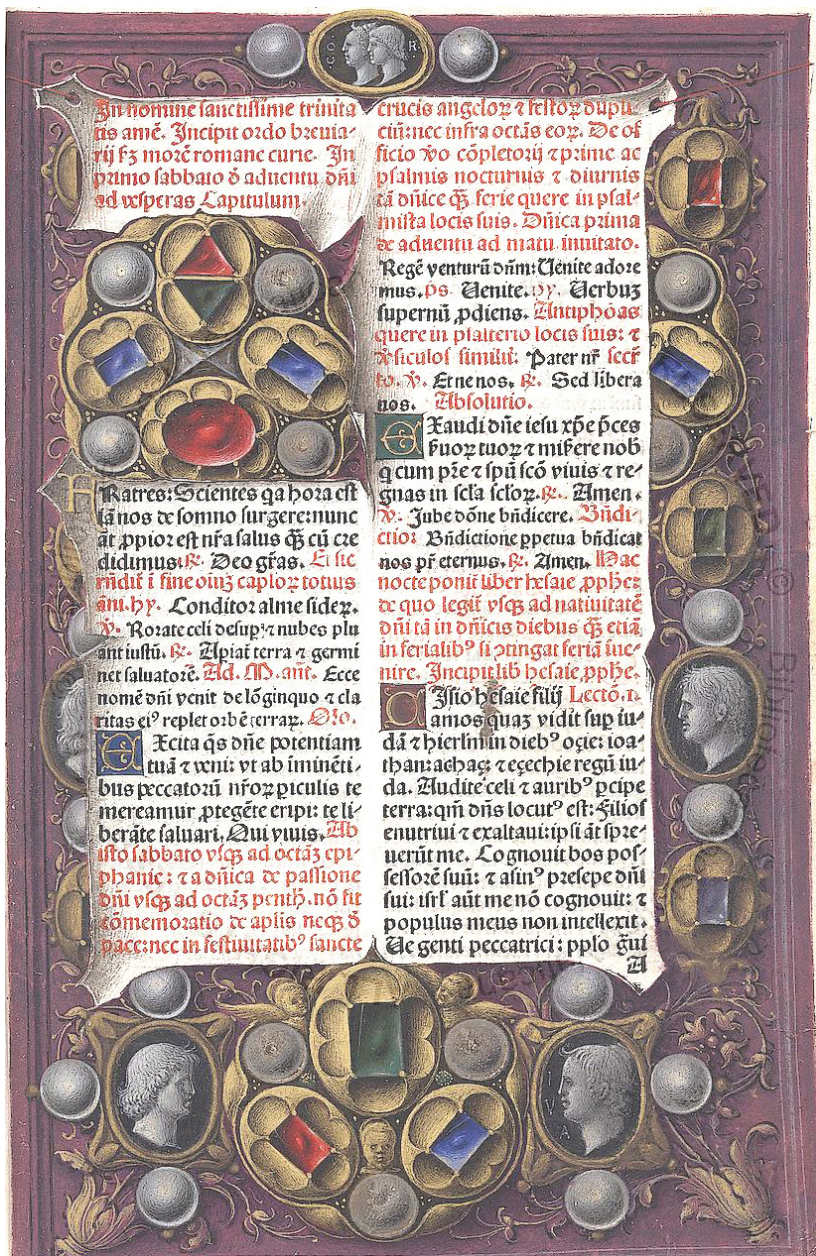 CO R
In nomine sanctissime trinita
tis amē. Incipit ordo breuia⸗
rij ẜꝫ morē romane curie. In
primo sabbato ď aduentu dñi
ad vesperas Capitulum.
FRatres: Scientes qa hora est
iā nos de somno surgere: nunc
aūt ꝓpior est nr̄a salus q̄ꝫ cū cre
didimus. ℟. Deo gr̄as. Et sic
rn̄det̄ ī fine oīuꝫ caplōꝝ totius
āni. hy. Conditor alme sideꝝ.
℣. Rorate celi desup̱: ⁊ nubes plu
ant iustū. ℟. Apiat̄ terra ⁊ germi
net saluatorē. Ad. M. añt. Ecce
nomē dn̄i venit de lōginquo ⁊ cla
ritas eiꝰ replet orbē terraꝝ. Oro.
EXcita q̄s dn̄e potentiam
tuā ⁊ veni: vt ab īminēti⸗
bus peccatorū nr̄oꝝ piculis te
mereamur ꝓtegēte eripi: te li⸗
berāte saluari. Qui viuis. Ab
isto sabbato vsqꝫ ad octāꝫ epi⸗
phanie: ⁊ a dn̄ica de passione
dn̄i vsqꝫ ad octāꝫ penth. nō fit
cōmemoratio de apl̄is neqꝫ ď
pace: nec in festiuitatibꝰ sancte
crucis angeloꝝ ⁊ festoꝝ dupli
ciū: nec infra octās eoꝝ. De of
ficio v̄o cōpletorij ⁊ prime ac
psalmis nocturnis ⁊ diurnis
tā dn̄ice q̄ꝫ ferie quere in psal⸗
mista locis suis. Dn̄ica prima
de aduentu ad matu. inuitato.
Regē venturū dn̄m: Uenite adore
mus. ps. Uenite. hy. Uerbuꝫ
supernū ꝓdiens. Antiphōas
quere in psalterio locis suis: ⁊
v̄siculos similit̄: Pater nr̄ secr̄
to. ℣. Et ne nos. ℟. Sed libera
nos. Absolutio.
EXaudi dn̄e iesu xp̄e p̄ces
ẜuoꝝ tuoꝝ ⁊ misere̱re nob̄
q cum pr̄e ⁊ spū scō viuis ⁊ re⸗
gnas in scl̄a scl̄oꝝ. ℟. Amen.
℣. Jube dōne bn̄dicere. Bn̄di⸗
ctio: Bn̄dictione ꝑpetua bn̄dicat
nos pr̄ eternus. ℟. Amen. Hac
nocte ponit̄ liber hesaie ꝓphe:
de quo legit̄ vsqꝫ ad natiuitatē
dn̄i tā in dn̄icis diebus q̄ꝫ etiā
in ferialibꝰ si ↄtingat feriā iue⸗
nire. Incipit lib hesaie ꝓphe.
UIsio hesaie filij Lectō. 1.
amos quaꝫ vidit sup iu⸗
dā ⁊ hierlm̄ in diebꝰ oꝫie: ioa
than: achaꝫ: ⁊ eꝫechie regū iu⸗
da. Audite celi ⁊ auribꝰ ꝑcipe
terra: qm̄ dn̄s locutꝰ est: Filios
enutriui ⁊ exaltaui: ipsi aūt spre⸗
uerūt me. Cognouit bos pos⸗
sessorē suū: ⁊ asinꝰ presepe dn̄i
sui: isrl̄ aūt me nō cognouit: ⁊
populus meus non intellexit.
Ue genti peccatrici: pplo gui
A
IVA